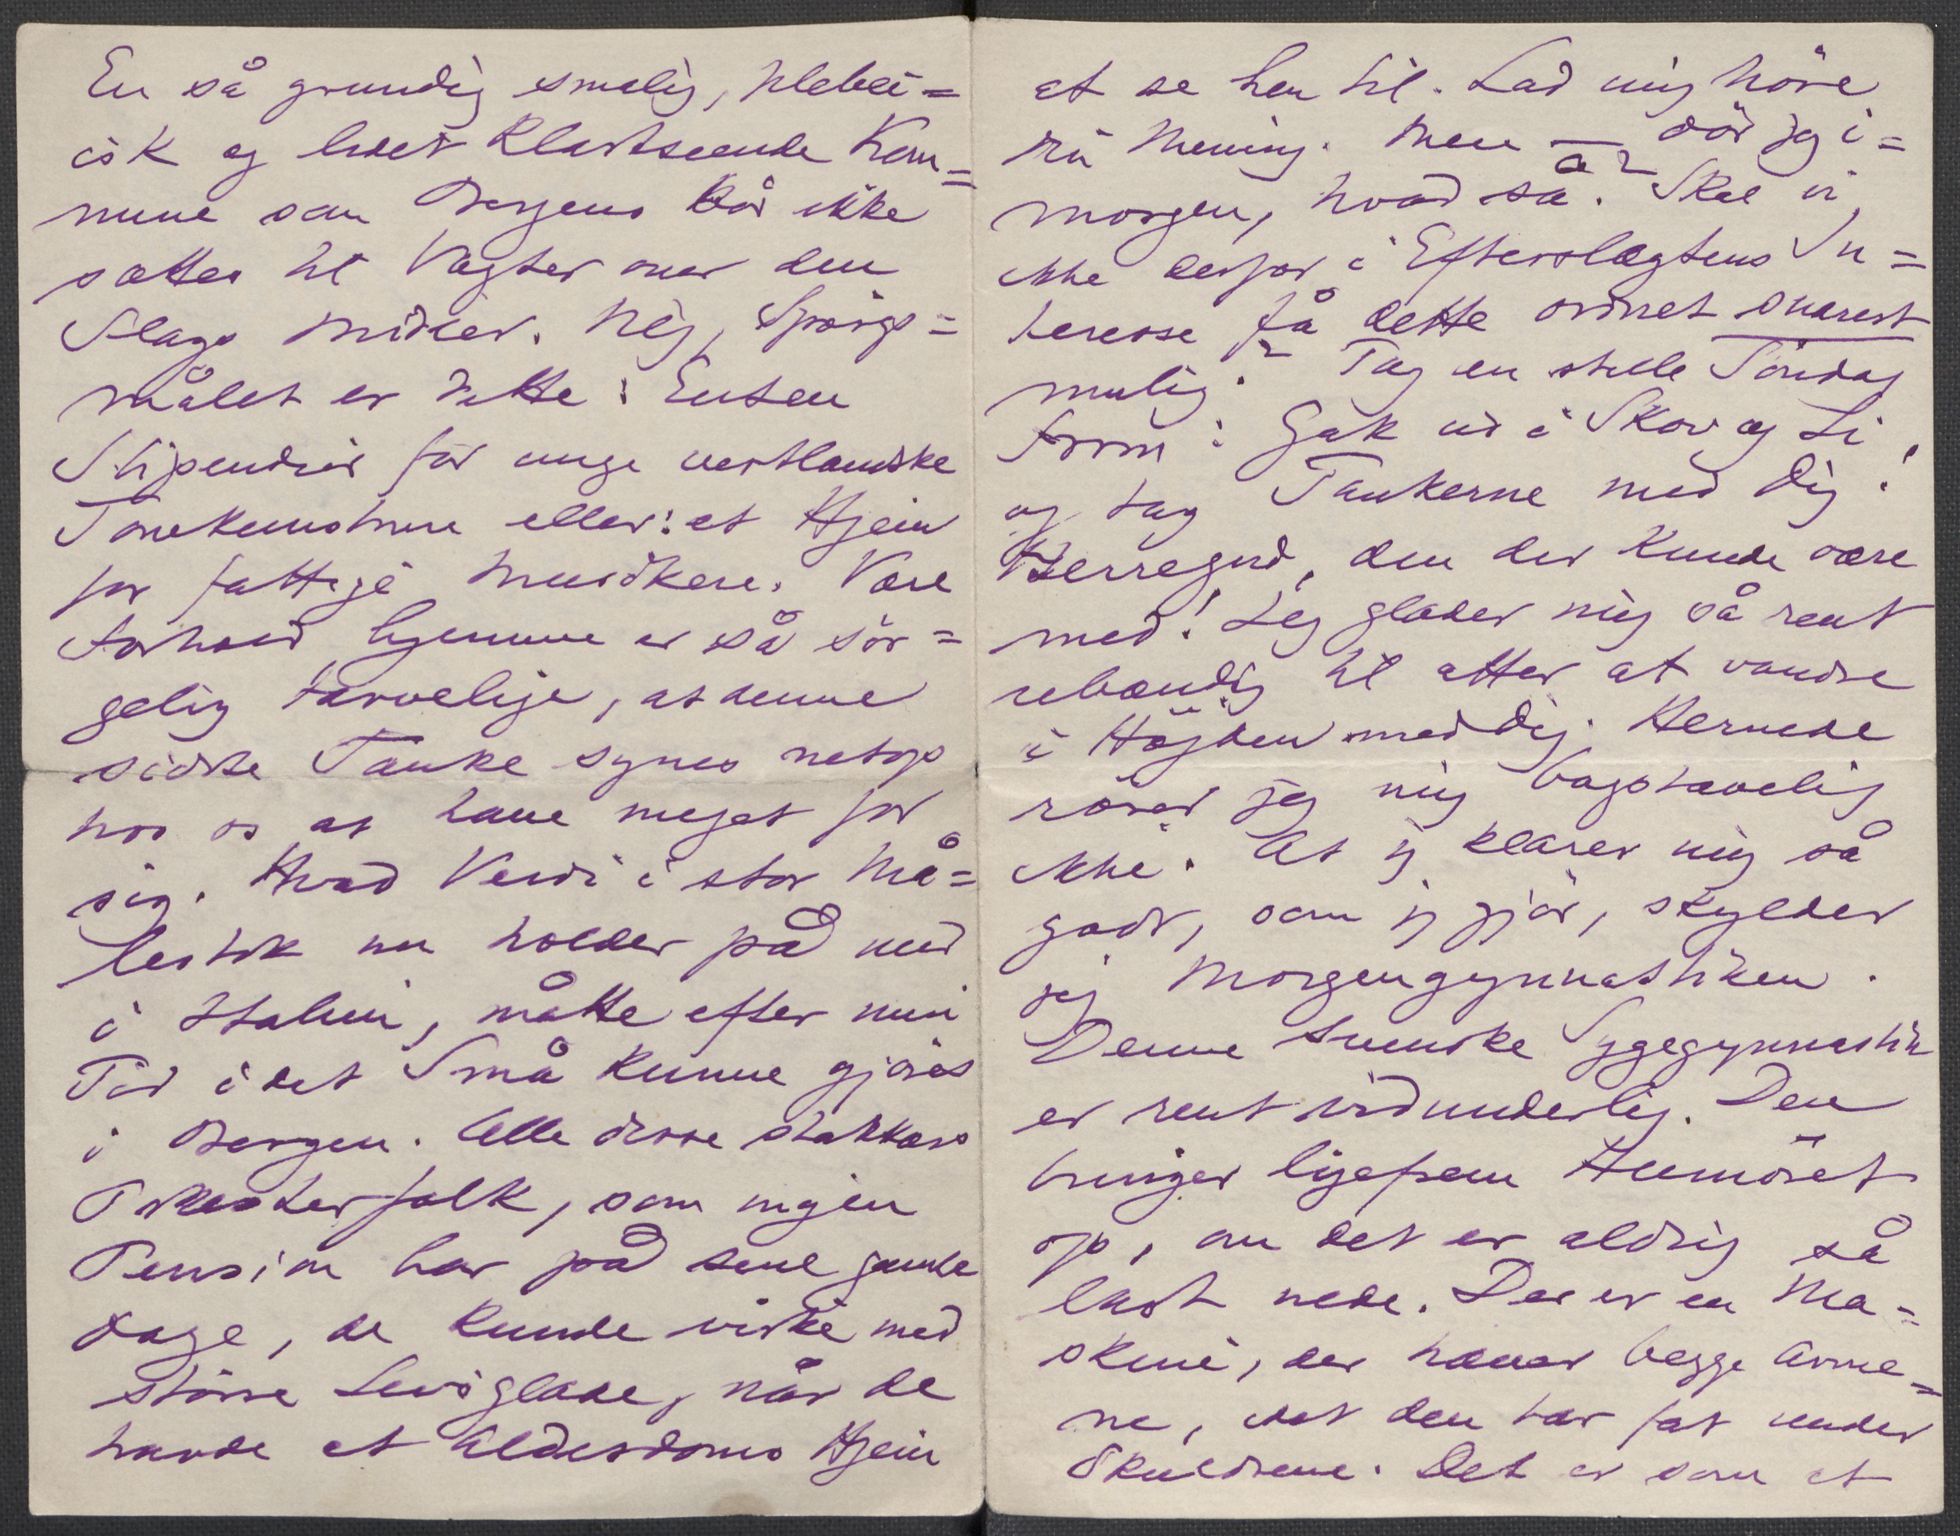 En så grundig smålig, plebei=
isk og lidet klartseende Kom=
mune som Bergens bör ikke
sættes til Vogter over den
Slags Midler. Nej, Spörgs=
målet er dette: Enten
Stipendier for unge vestlandske
Tonekunstnere eller: et Hjem
for fattige Musikere. Vore
Forhold hjemme er så sör=
gelig tarvelige, at denne
sidste Tanke synes netop
hos os at have meget for
sig. Hvad Verdi i stor Må=
lestok nu holder på med
i Italien, måtte efter min
Tid i det Små kunne gjöres
i Bergen. Alle disse stakkars
Orkesterfolk, som ingen
Pension har på sine gamle
Dage, de kunde virke med
större Livsglæde, når de
havde et Alderdoms Hjem
at se hen til. Lad mig höre
din Mening. Men – dör jeg i=
morgen, hvad så? Skal vi
ikke derfor i Efterslægtens In=
teresse få dette ordnet snarest
mulig? Tag en stille Söndag
Form: Gåk ud i Skov og Li,
og tag Tankerne med Dig!
Herregud, den der kunde være
med! Jeg glæder mig så rent
ubændig til atter at vandre
i Höjden med Dig. Hernede
rörer jeg mig bogstavelig
ikke. At jeg klarer mig så
godt, som jeg gjör, skylder
jeg Morgengymnastiken.
Denne svenske Sygegymnastik
er rent vidunderlig. Den
bringer ligefrem Humöret
op, om det er aldrig så
langt nede. Der er en Ma=
skine, der hæver begge Arme=
ne, idet den tar fat under
Skuldrene. Det er som et